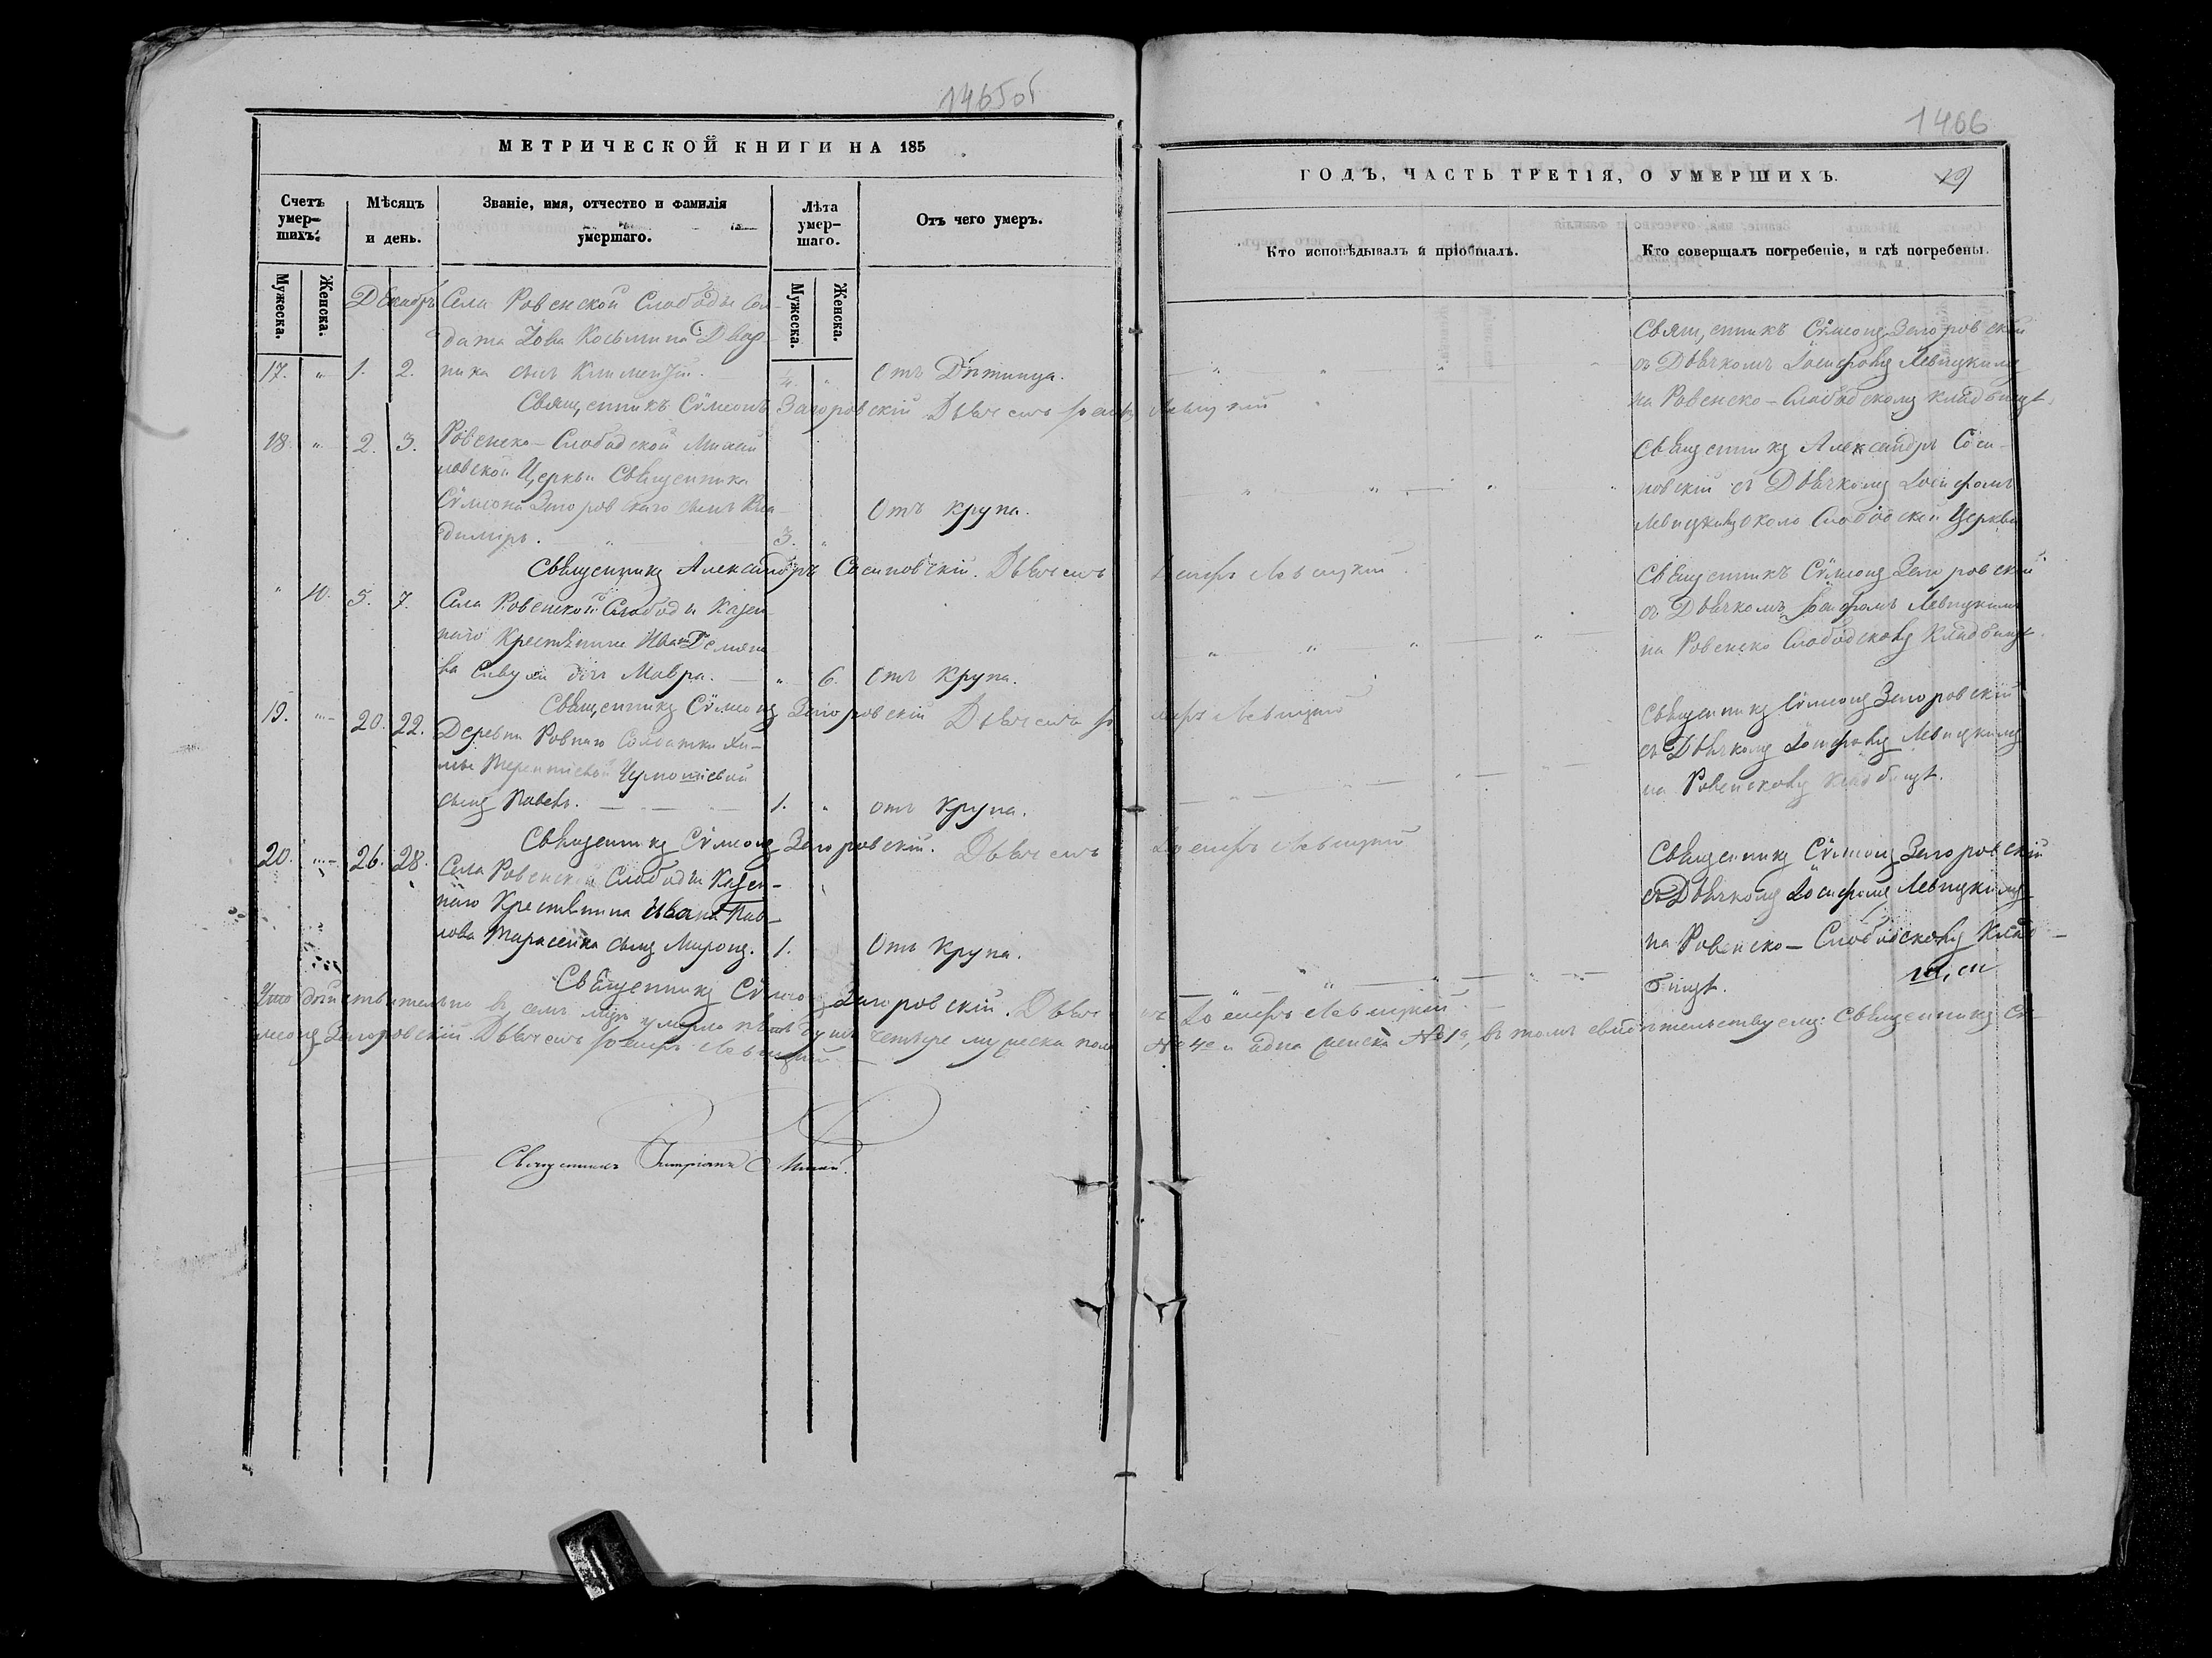 1465об
МЕТРИЧЕСКОЙ КНИГИ НА 185
Счетъ умер-шихъ.
Мѣсяцъ и день.
Званіе, имя, отчество и фамилія умершаго.
Лѣта умер-шаго.
Отъ чего умеръ.
Мужеска.
Женска.
Мужеска.
Женска.
Декабрь
Села Ровенской Слободы Сол-
дата Іова Косьмина Двор-
17. " 1. 2. ника сынъ Климентій. 1/4. " Отъ Дѣтинца.
Священникъ Сѷмеонъ Загоровскій Дьячекъ Іосифъ Левицкій
18. " 2. 3. Ровенско-Слободской Михай
ловской Церкви Священника
Сѷмеона Загоровскаго сынъ Вла-
Отъ крупа.
димиръ. 3. "
Священникъ Александръ Сосиновскій. Дьячекъ Іосифъ Левицкій.
" 10. 5. 7. Села Ровенской Слободы Казен
наго Крестьянина Ивана Демяно
ва дочь Мавра. " 6. Отъ Крупа.
Священникъ Сѷмеонъ Загоровскій Дьячекъ Іосифъ Левицкій
19. " 20. 22. Деревни Ровнаго Солдатки
Терентіевой
сынъ Павелъ. 1. " отъ Крупа.
Священникъ Сѷмеонъ Загоровскій. Дьячекъ Іосифъ Левицкій
20. " 26. 28. Села Ровенской Слободы Казен-
наго Крестьянина Ивана Пав-
лова Тарасенка сынъ Миронъ. 1. Отъ Крупа.
Священникъ Сѷмеонъ Загоровскій. Дьячекъ Іосифъ Левицкій
Что дѣйствительно въ семъ мѣсяцѣ умерло душъ четыре мужеска пола № 4е и одна женска № 1а, въ томъ свидѣтельствуемъ: Священникъ Сѷ-
меонъ Загоровскій Дьячекъ Іосифъ Левицкій
Священникъ
1466
ГОДЪ, ЧАСТЬ ТРЕТІЯ, О УМЕРШИХЪ.
Кто исповѣдывалъ и пріобщалъ.
Кто совершалъ погребеніе, и гдѣ погребены.
Священникъ Сѷмеонъ Загоровскій
съ Дьячкомъ Іосифомъ Левицкимъ
на Ровенско-Слободскомъ кладбищѣ.
Священникъ Александръ Соси-
новскій съ Дьячкомъ Іосифомъ
Левицкимъ около Слободской Церкви
Священникъ Сѷмеонъ Загоровскій
съ Дьячкомъ Іосифомъ Левицкимъ
на Ровенско Слободскомъ Кладбищѣ.
Священникъ Сѷмеонъ Загоровскій
съ Дьячкомъ Іосифомъ Левицкимъ
на Ровенскомъ Кладбищѣ.
Священникъ Сѷмеонъ Загоровскій
съ Дьячкомъ Іосифомъ Левицкимъ
на Ровенско-Слободскомъ Клад-
бищѣ.